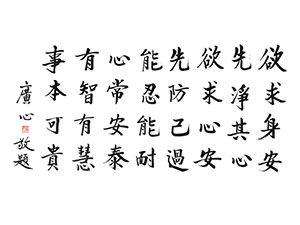 欲求身安
先淨其心
欲求心安
先防己過
能忍能耐
心常安泰
有智有慧
事本可貴
廣心敬題